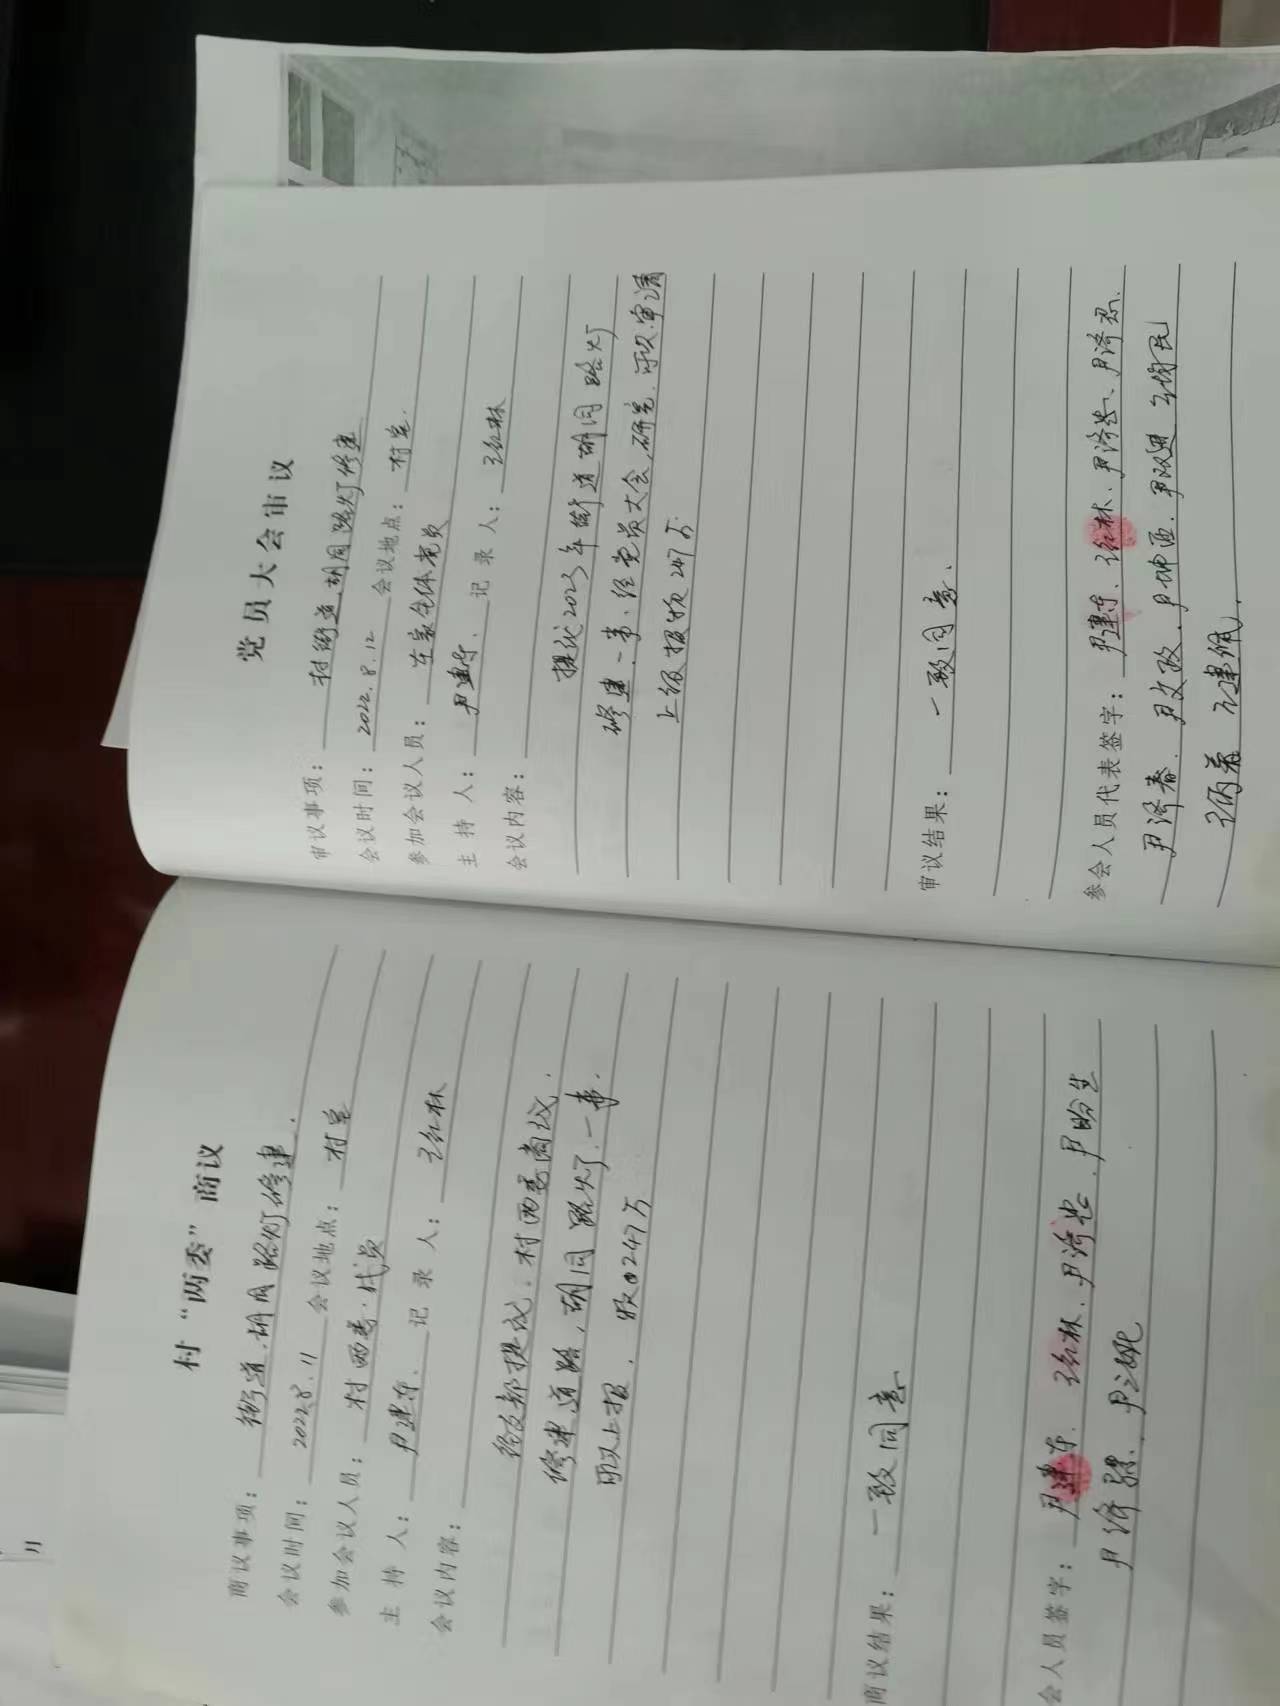 村“两委”商议
商议事项：街道、胡同路灯修建.
会议时间：2022.8.11 会议地点：村室
参加会议人员：村两委成员
主 持 人：尹建存、记 录 人：张红林
会议内容：
经支部提议，村两委商议、
修建道路，胡同路灯一事.
可以上报，
247万
商议结果：一致同意
会人员签字：尹建存、张红林、尹济忠、尹盼生
党员大会审议
审议事项：村街道、胡同路灯修建
会议时间：2022.8.12 会议地点：村室.
参加会议人员：在家全体党员
主 持 人：尹建存、记 录 人：张红林
会议内容：
提议2023年街道胡同路灯
修建一事、经党员大会研究、可以申请
上级拨款247万
审议结果：一致同意、
参会人员代表签字：尹建存、张红林、尹济忠、尹济忍.
尹济春、尹文政、尹双进